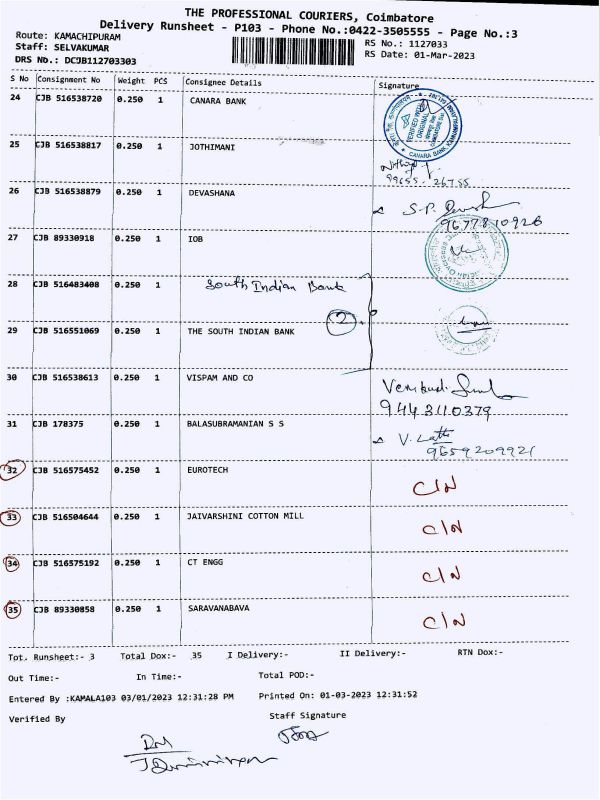 THE PROFESSIONAL COURIERS, Coimbatore
Delivery Runsheet - P103 - Phone No.:0422-3505555 - Page No.:3
Route: KAMACHIPURAM RS No.: 1127033
Staff: SELVAKUMAR RS Date: 01-Mar-2023
DRS No.: DCJB112703303
S No Consignment No Weight PCS Consignee Details Signature
24 CJB 516538720 0.250 1 CANARA BANK
VERIFIED WITH ORIGINAL
CANARA BANK
25 CJB 516538817 0.250 1 JOTHIMANI
99655 26755
26 CJB 516538879 0.250 1 DEVASHANA
S.P.
9677810926
27 CJB 89330918 0.250 1 IOB
28 CJB 516483408 0.250 1 South Indian Bank
2
29 CJB 516551069 0.250 1 THE SOUTH INDIAN BANK
30 CJB 516538613 0.250 1 VISPAM AND CO
9443110379
31 CJB 178375 0.250 1 BALASUBRAMANIAN S S V. Latha
9659209921
32 CJB 516575452 0.250 1 EUROTECH C/N
33 CJB 516504644 0.250 1 JAIVARSHINI COTTON MILL C/N
34 CJB 516575192 0.250 1 CT ENGG C/N
35 CJB 89330858 0.250 1 SARAVANABAVA C/N
Tot. Runsheet:- 3 Total Dox:- 35 I Delivery:- II Delivery:- RTN Dox:-
Out Time:- In Time:- Total POD:-
Entered By :KAMALA103 03/01/2023 12:31:28 PM Printed On: 01-03-2023 12:31:52
Verified By Staff Signature